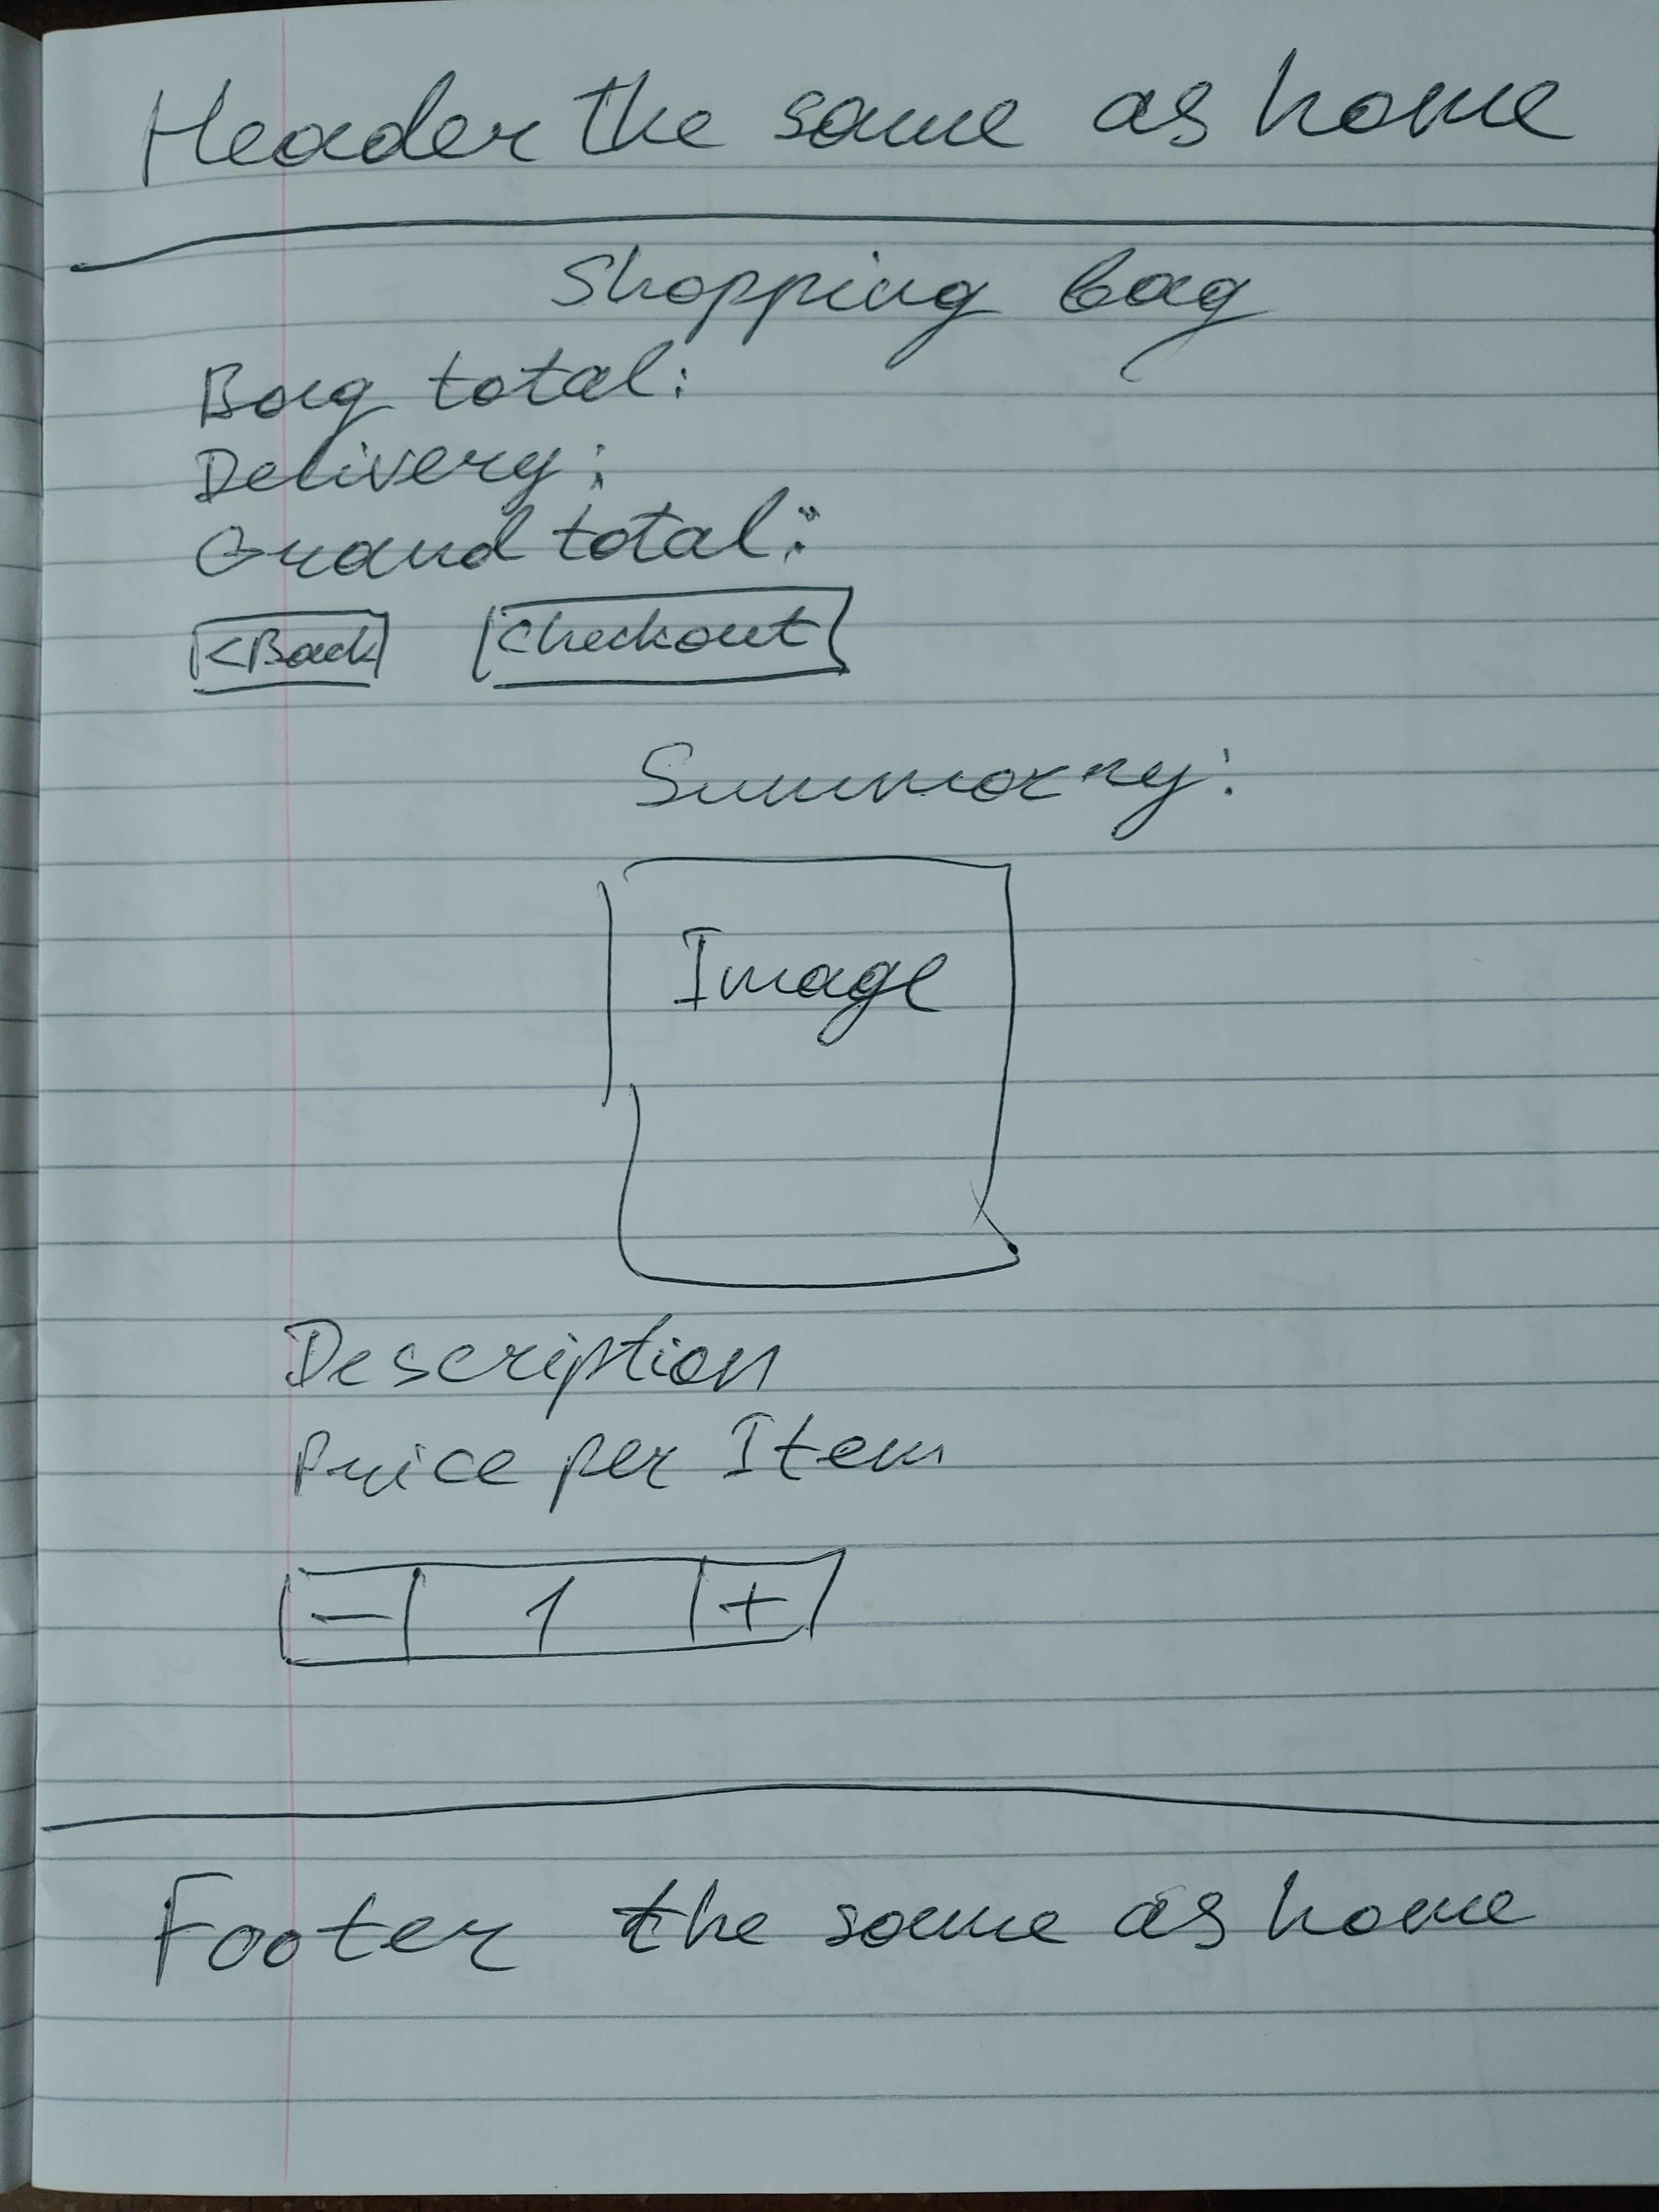 Header the same as home
Shopping bag
Bag total:
Delivery:
Grand total:
<Back Checkout
Summary:
Image
Description
Price per Item
- 1 +
Footer the same as home